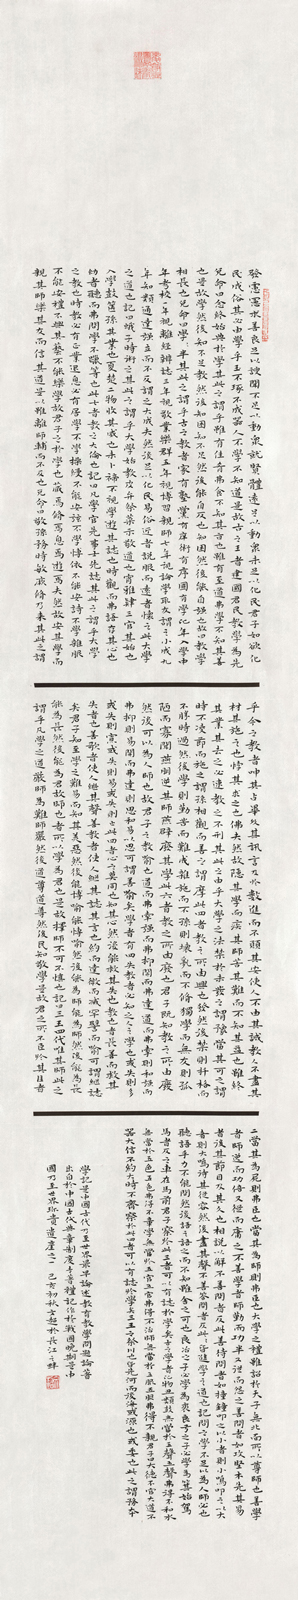 發慮憲求善良足以謏聞不足以動眾就賢體遠足以動眾未足以化民君子如欲化
民成俗其必由學乎玉不琢不成器人不學不知道是故古之王者建國君民教學為先
兌命曰念終始典于學其此之謂乎雖有佳肴弗食不知其旨也雖有至道弗學不知其善
也是故學然後知不足教然後知困知不足然後能自反也知困然後能自強也故曰教學
相長也兌命曰學學半其此之謂乎古之教者家有塾黨有庠術有序國有學比年入學中
年考校一年視離經辨誌三年視敬業樂群五年視博習親師七年視論學取友謂之小成九
年知類通達強立而不反謂之大成夫然後足以化民易俗近者說服而遠者懷之此大學
之道也記曰蛾子時術之其此之謂乎大學始教皮弁祭菜示敬道也宵雅肄三官其始也
入學鼓篋孫其業也夏楚二物收其威也未卜禘不視學遊其誌也時觀而弗語存其心也
幼者聽而弗問學不躐等也此七者教之大倫也記曰凡學官先事士先誌其此之謂乎大學
之教也時教必有正業退息必有居學不學操縵不能安弦不學博依不能安詩不學雜服
不能安禮不興其藝不能樂學故君子之於學也藏焉修焉息焉遊焉夫然故安其學而
親其師樂其友而信其道是以雖離師輔而不反也兌命曰敬孫務時敏厥修乃來其此之謂
乎今之教者呻其占畢多其訊言及於數進而不顧其安使人不由其誠教人不盡其
材其施之也悖其求之也佛夫然故隱其學而疾其師苦其難而不知其益也雖終
其業其去之必速教之不刑其此之由乎大學之法禁於未發之謂豫當其可之謂
時不凌節而施之謂孫相觀而善之謂摩此四者教之所由興也發然後禁則扞格而
不勝時過然後學則勤苦而難成雜施而不孫則壞亂而不修獨學而無友則孤
陋而寡聞燕朋逆其師燕辟廢其學此六者教之所由廢也君子既知教之所由廢
然後可以為人師也故君子之教喻也道而弗牽強而弗抑開而弗達道而弗牽則和強而
弗抑則易開而弗達則思和易以思可謂善喻矣學者有四失教者必知之人之學也或失則多
或失則寡或失則易或失則止此四者心之莫同也知其心然後能救其失也教也者長善而救其
失者也善歌者使人繼其聲善教者使人繼其誌其言也約而達微而臧罕譬而喻可謂繼誌
矣君子知至學之難易而知其美惡然後能博喻能博喻然後能為師能為師然後能為長
能為長然後能為君故師也者所以學為君也是故擇師不可不慎也記曰三王四代唯其師此之
謂乎凡學之道嚴師為難師嚴然後道尊道尊然後民知敬學是故君之所不臣於其臣者
二當其為尸則弗臣也當其為師則弗臣也大學之禮雖詔於天子無北面所以尊師也善學
者師逸而功倍又從而庸之不善學者師勤而功半又從而怨之善問者如攻堅木先其易
者後其節目及其久也相說以解不善問者反此善待問者如撞鐘叩之以小者則小鳴叩之以大
者則大鳴待其從容然後盡其聲不善答問者反此此皆進學之道也記問之學不足以為人師必也
聽語乎力不能問然後語之語之而不知雖舍之可也良冶之子必學為裘良弓之子必學為箕始駕
馬者反之車在馬前君子察於此三者可以有誌於學矣古之學者比物醜類鼓無當於五聲五聲弗得不和水
無當於五色五色弗得不章學無當於五官五官弗得不治師無當於五服五服弗得不親君子曰大德不官大道不
器大信不約大時不齊察於此四者可以有誌於學矣三王之祭川也皆先河而後海或源也或委也此之謂務本
學記是中國古代也是世界最早論述教育教學問題論著
出自於中國古代典章制度專著禮記作於戰國晚期是中
國乃至世界珍貴遺産之一己亥初秋士超於長江之畔